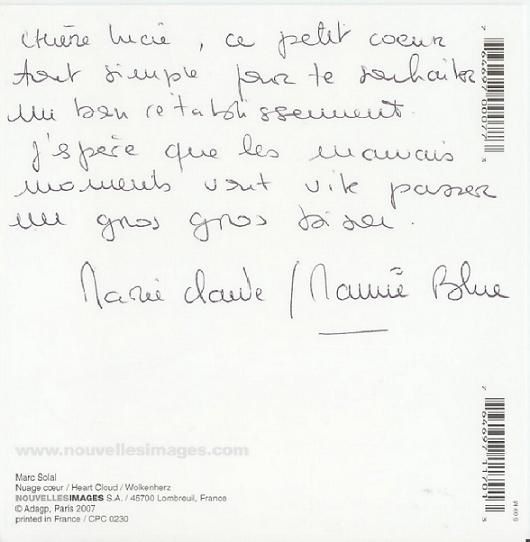 chère lucie, ce petit coeur
tout simple pour te souhaiter
un bon rétablissement.
j'espère que les mauvais
moments vont vite passer
un gros gros bisou.
Marie claude / Mamie Blue
www.nouvellesimages.com
Marc Solal
Nuage cœur / Heart Cloud / Wolkenherz
NOUVELLESIMAGES S.A. / 45700 Lombreuil, France
© Adagp, Paris 2007
printed in France / CPC 0230
7 64697 00077 3
7 64697 11701 3